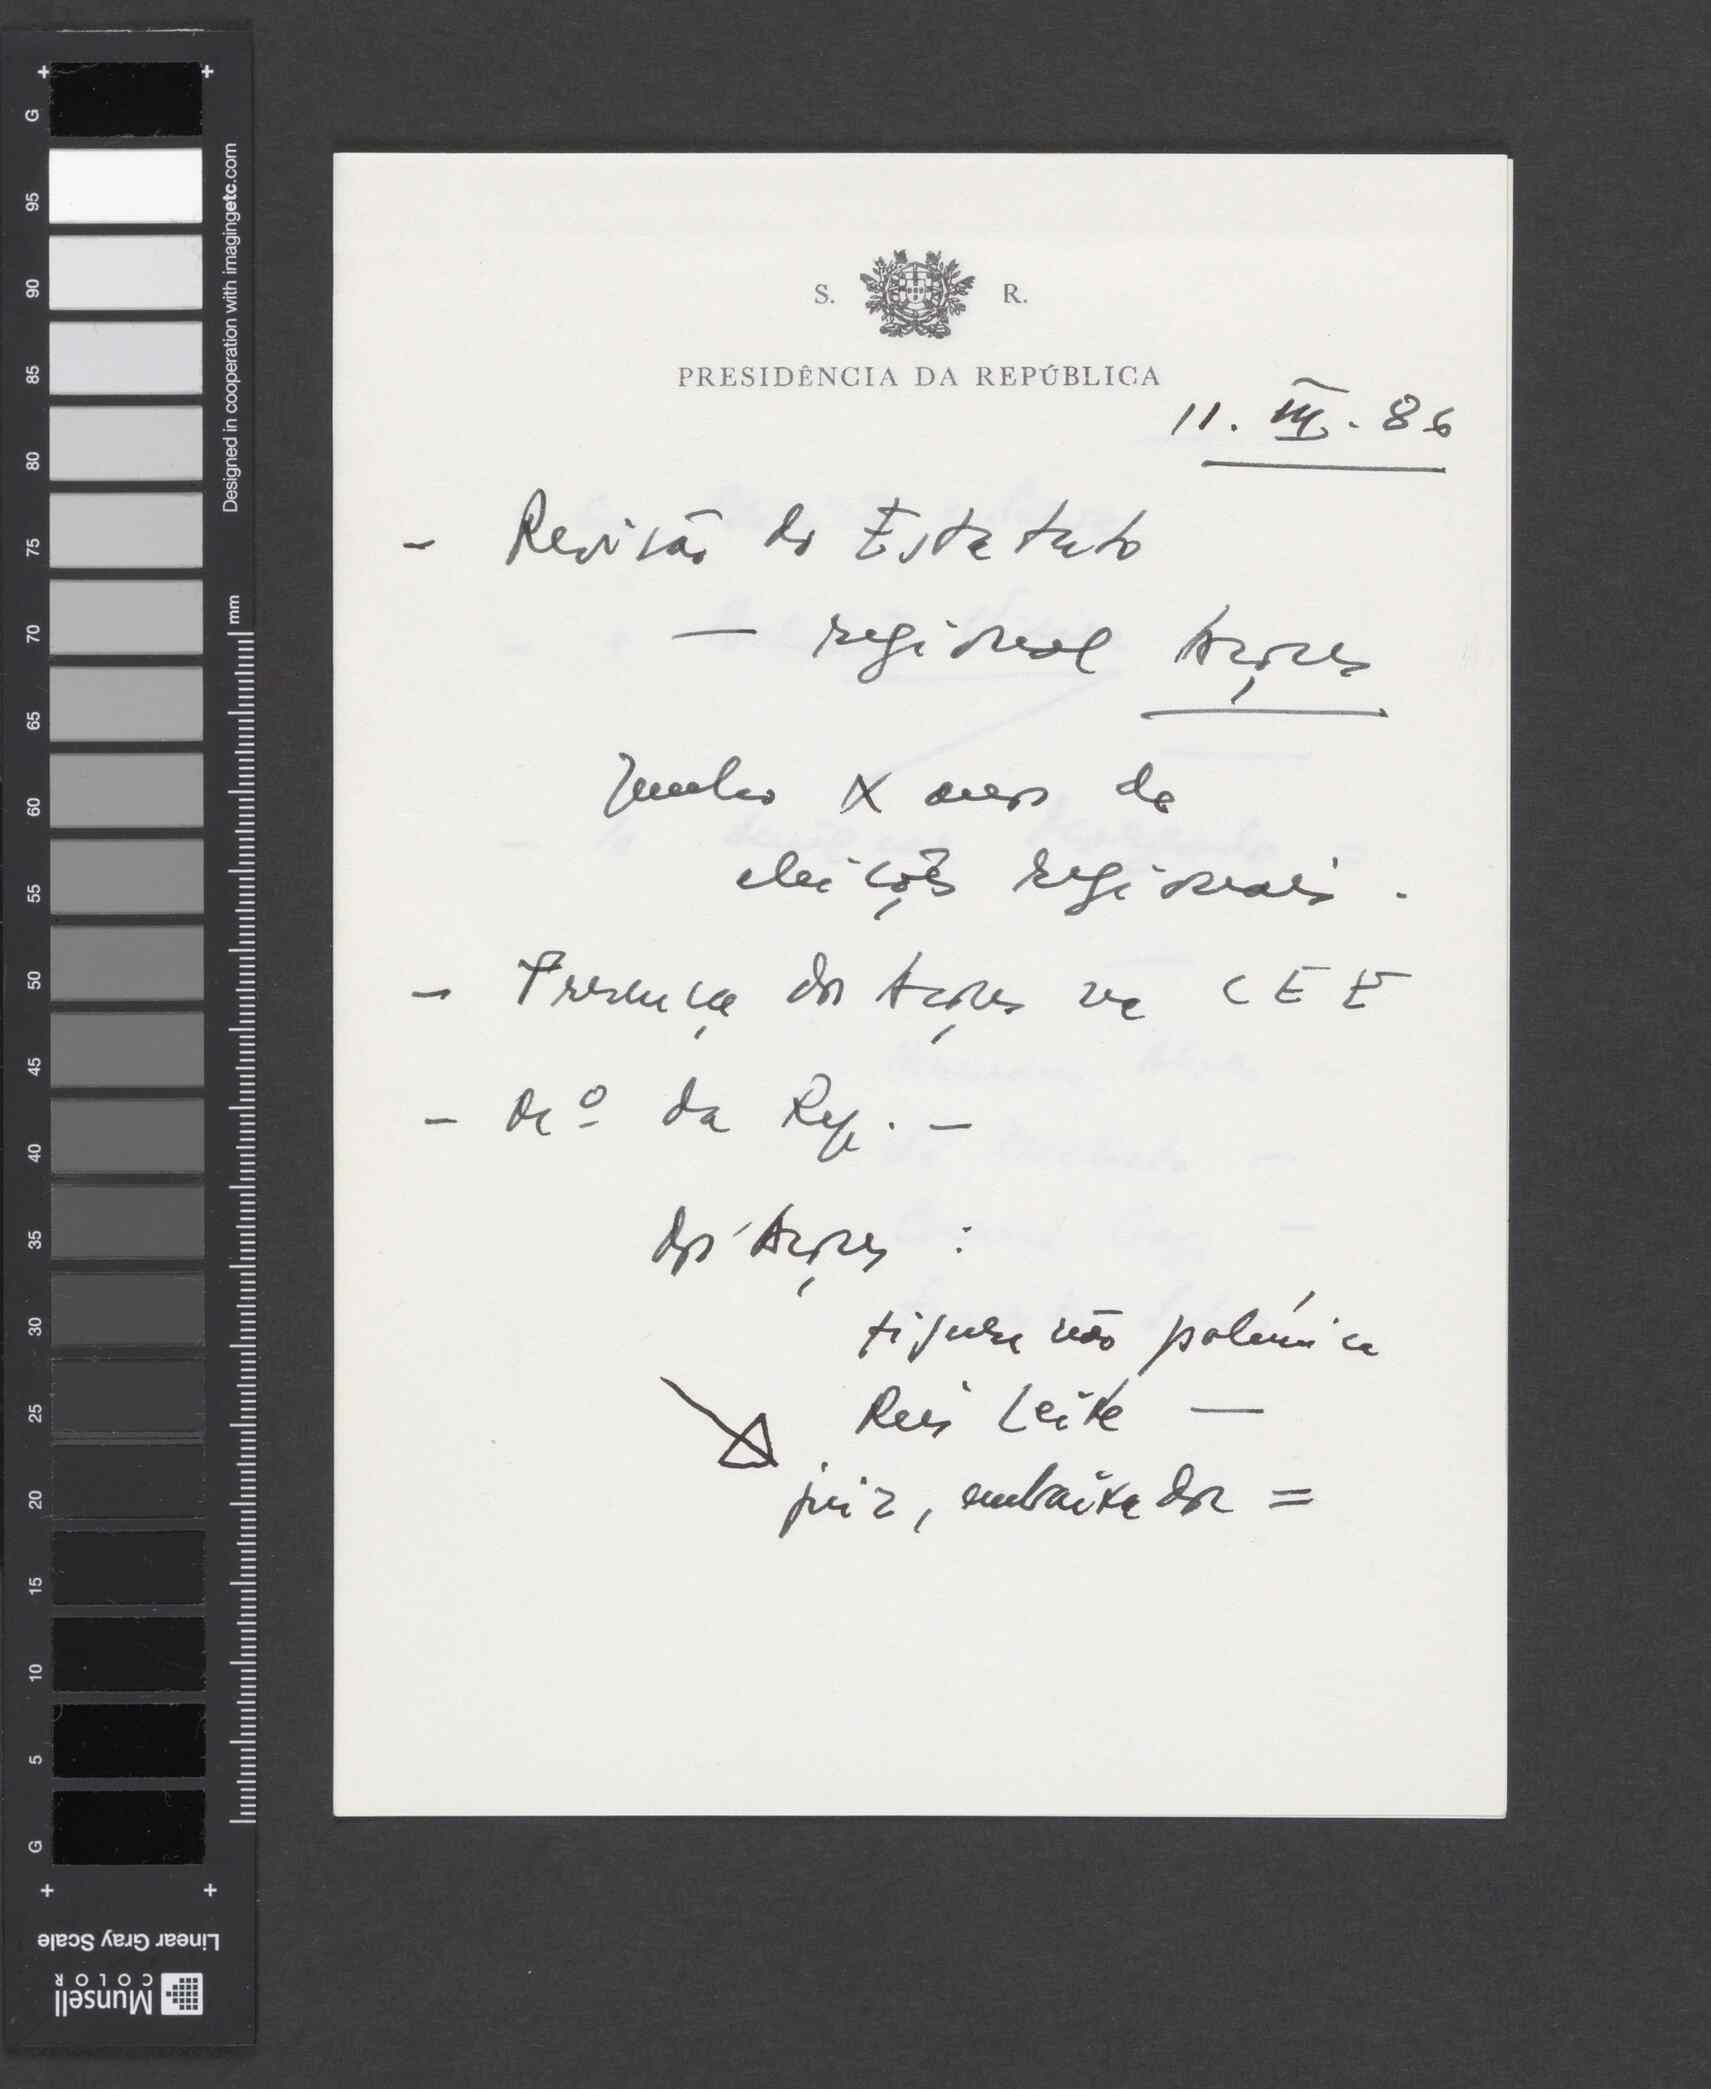 S. R.
PRESIDÊNCIA DA REPÚBLICA
11. III. 86
- Revisão do Estatuto
— regional Açores
Junho X anos de
eleições regionais.
- Presença dos Açores na CEE
- da Rep. -
dos Açores :
figura não polémica
Reis Leite —
juiz, embaixador =
G
95
90
85
80
75
70
65
60
55
50
45
40
35
30
25
20
15
10
5
G
Designed in cooperation with imagingetc.com
mm
Linear Gray Scale
Munsell
COLOR